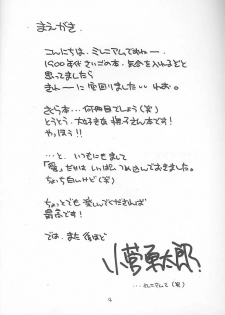 まえがき
こんにちは、ミレニアムですねー。
1900年代さいごの本、気合を入れるぞと
思ってましたら
きれーに空回りました…いわお。
きら本…何冊目でしょう(笑)
とうとう、大好きな 撫子さん本です!
やっほう!!
…と、いつもにもまして
「愛」だけは いっぱいつめ込んでおきました。
ちょっち白いけど(笑)
ちょっとでも 楽しんでくだされば
最高です!
では、また後ほど
小菅勇太郎
…ミレニアムで(笑)